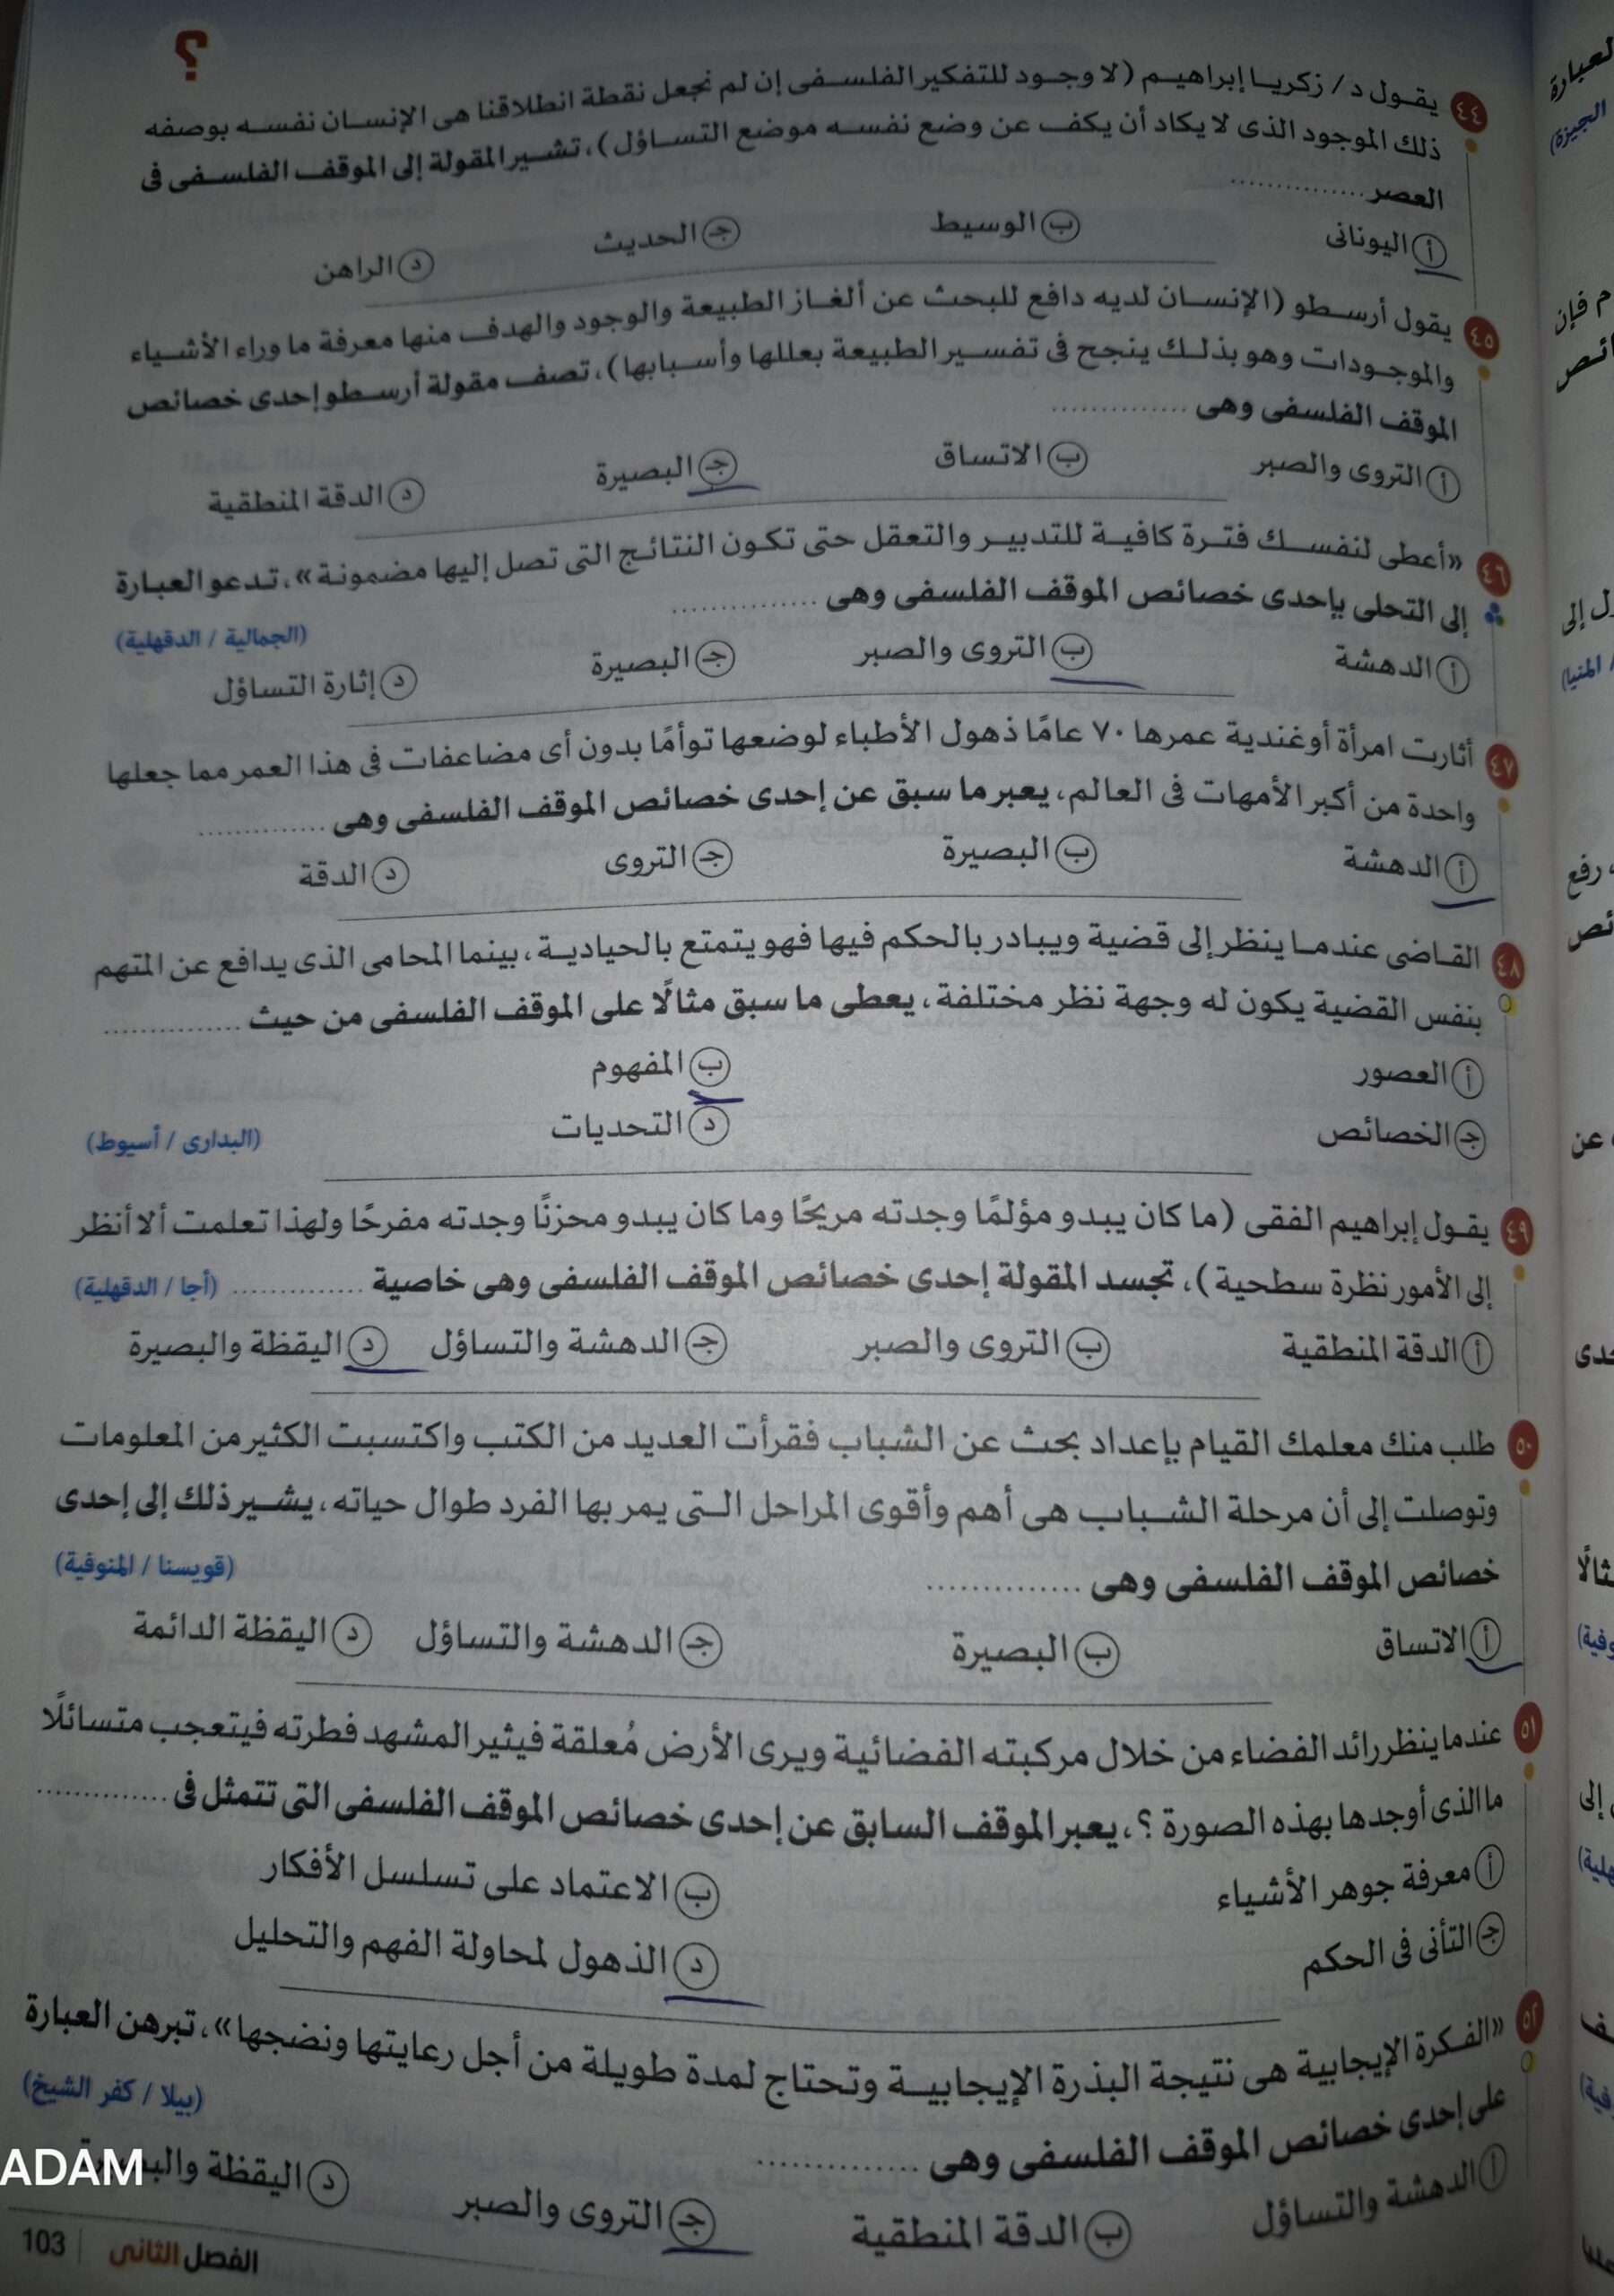 ؟
٤٤ يقول د/ زكريا إبراهيم (لا وجود للتفكير الفلسفى إن لم نجعل نقطة انطلاقنا هى الإنسان نفسه بوصفه
ذلك الموجود الذى لا يكاد أن يكف عن وضع نفسه موضع التساؤل)، تشير المقولة إلى الموقف الفلسفى فى
العصر ..............
أ اليونانى ب الوسيط ج الحديث د الراهن
٤٥ يقول أرسطو (الإنسان لديه دافع للبحث عن ألغاز الطبيعة والوجود والهدف منها معرفة ما وراء الأشياء
والموجودات وهو بذلك ينجح فى تفسير الطبيعة بعللها وأسبابها)، تصف مقولة أرسطو إحدى خصائص
الموقف الفلسفى وهى ..............
أ التروى والصبر ب الاتساق ج البصيرة د الدقة المنطقية
٤٦ «أعطى لنفسك فترة كافية للتدبير والتعقل حتى تكون النتائج التى تصل إليها مضمونة»، تدعو العبارة
إلى التحلى بإحدى خصائص الموقف الفلسفى وهى ..............
(الجمالية / الدقهلية)
أ الدهشة ب التروى والصبر ج البصيرة د إثارة التساؤل
٤٧ أثارت امرأة أوغندية عمرها ٧٠ عامًا ذهول الأطباء لوضعها توأمًا بدون أى مضاعفات فى هذا العمر مما جعلها
واحدة من أكبر الأمهات فى العالم، يعبر ما سبق عن إحدى خصائص الموقف الفلسفى وهى ..............
أ الدهشة ب البصيرة ج التروى د الدقة
٤٨ القاضى عندما ينظر إلى قضية ويبادر بالحكم فيها فهو يتمتع بالحيادية، بينما المحامى الذى يدافع عن المتهم
بنفس القضية يكون له وجهة نظر مختلفة، يعطى ما سبق مثالًا على الموقف الفلسفى من حيث ..............
أ العصور ب المفهوم
ج الخصائص د التحديات (البدارى / أسيوط)
٤٩ يقول إبراهيم الفقى (ما كان يبدو مؤلمًا وجدته مريحًا وما كان يبدو محزنًا وجدته مفرحًا ولهذا تعلمت ألا أنظر
إلى الأمور نظرة سطحية)، تجسد المقولة إحدى خصائص الموقف الفلسفى وهى خاصية .............. (أجا / الدقهلية)
أ الدقة المنطقية ب التروى والصبر ج الدهشة والتساؤل د اليقظة والبصيرة
٥٠ طلب منك معلمك القيام بإعداد بحث عن الشباب فقرأت العديد من الكتب واكتسبت الكثير من المعلومات
وتوصلت إلى أن مرحلة الشباب هى أهم وأقوى المراحل التى يمر بها الفرد طوال حياته، يشير ذلك إلى إحدى
خصائص الموقف الفلسفى وهى .............. (قويسنا / المنوفية)
أ الاتساق ب البصيرة ج الدهشة والتساؤل د اليقظة الدائمة
٥١ عندما ينظر رائد الفضاء من خلال مركبته الفضائية ويرى الأرض مُعلقة فيثير المشهد فطرته فيتعجب متسائلًا
ما الذى أوجدها بهذه الصورة ؟، يعبر الموقف السابق عن إحدى خصائص الموقف الفلسفى التى تتمثل فى ..............
أ معرفة جوهر الأشياء ب الاعتماد على تسلسل الأفكار
ج التأنى فى الحكم د الذهول لمحاولة الفهم والتحليل
٥٢ «الفكرة الإيجابية هى نتيجة البذرة الإيجابية وتحتاج لمدة طويلة من أجل رعايتها ونضجها»، تبرهن العبارة
على إحدى خصائص الموقف الفلسفى وهى ..............
(بيلا / كفر الشيخ)
أ الدهشة والتساؤل ب الدقة المنطقية ج التروى والصبر د اليقظة
ADAM
الفصل الثانى 103
لعبارة
الجيزة)
م فإن
ول إلى
/ المنيا)
رفع
عن